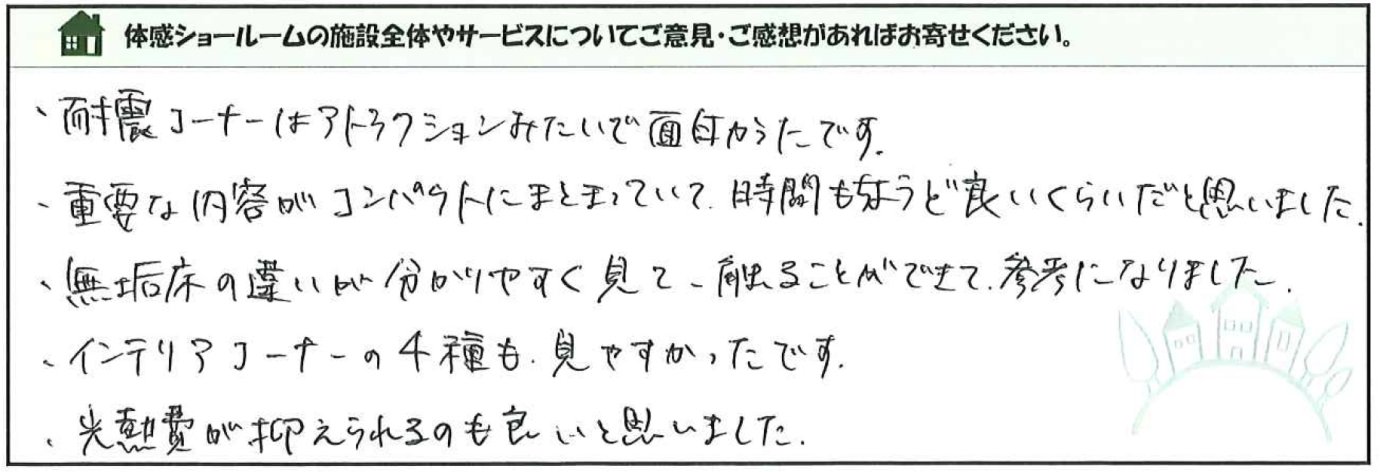 体感ショールームの施設全体やサービスについてご意見・ご感想があればお寄せください。
、耐震コーナーはアトラクションみたいで面白かったです。
、重要な内容がコンパクトにまとまっていて、時間もちょうど良いくらいだと思いました。
、無垢床の違いが分かりやすく見て、触ることができて、参考になりました。
、インテリアコーナーの4種も、見やすかったです。
、光熱費が抑えられるのも良いと思いました。